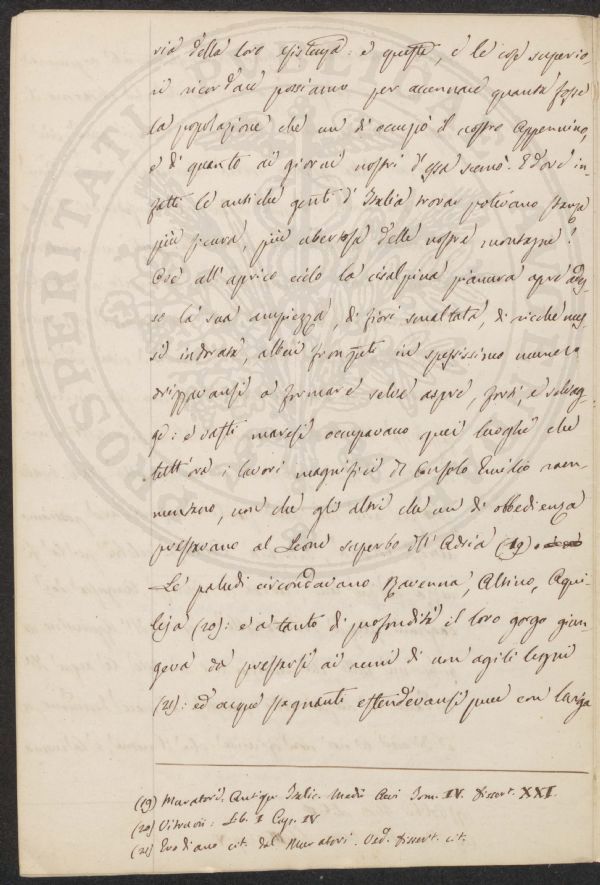 ria della loro esistenza: e queste, e le cose superio-
ri ricordate possiamo per accennare quanta fosse
la popolazione che un dì occupò il nostro Appennino,
e di quanto ai giorni nostri d'essa scemò. Ed ove in-
fatti le antiche genti d'Italia trovar potevano stanze
più sicure, più ubertose delle nostre montagne?
Ove all'aprico cielo la cisalpina pianura apre ades-
so la sua ampiezza, di fiori smaltata, di ricche mes-
si indorata, alberi fronzuti in spessissimo numero
drizzavansi a formare selve aspre, forti, e selvag-
ge: e vasti maresi occupavano quei luoghi che
tutt'ora i lavori magnifici di Emilio ram-
mentano, non che gli altri che un dì obbedienza
prestavano al Leone superbo dell'Adria (19)
Le paludi circondavano Ravenna, Altino, Aqui-
leja (20): e a tanto di profondità il loro gorgo giun-
geva da prestarsi ai remi di non agili legni
(21): ed acque stagnanti estendevansi pure con larga
(19) Muratori. Antiqu. Italic. Medii Aevi Tom. IV. Dissert. XXI.
(20) Vitruvii: Lib. I Cap. IV
(21) Erodiano cit. dal Muratori. Ved. Dissert. cit.
PROSPERITATI PUBLICAE